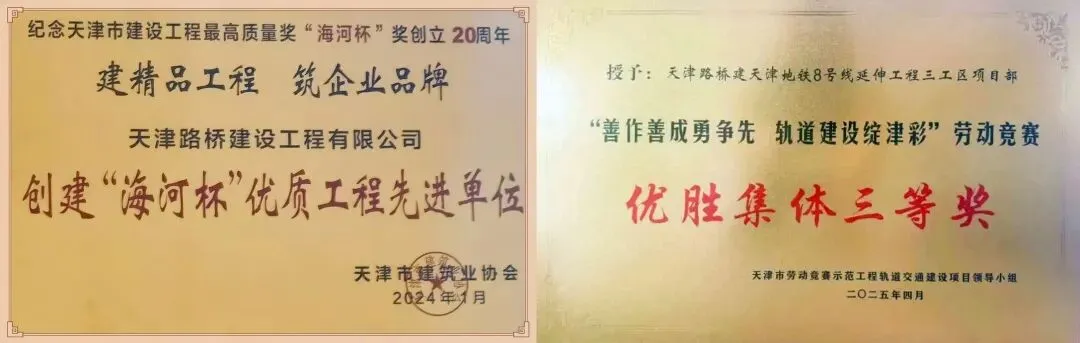 纪念天津市建设工程最高质量奖“海河杯”奖创立20周年
建精品工程 筑企业品牌
天津路桥建设工程有限公司
创建“海河杯”优质工程先进单位
天津市建筑业协会
2024年1月
授予：天津路桥建天津地铁8号线延伸工程三工区项目部
“善作善成勇争先 轨道建设绽津彩”劳动竞赛
优胜集体三等奖
天津市劳动竞赛示范工程轨道交通建设项目领导小组
二〇二五年四月